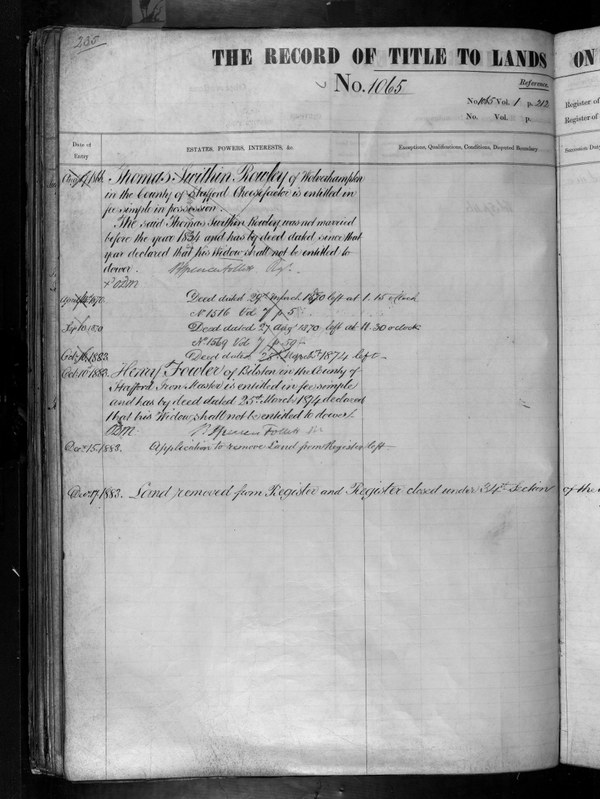 235
THE RECORD OF TITLE TO LANDS ON
No. 1065
Reference.
No 1065 Vol. 1 p. 212
No. Vol. p.
Register of
Register of
Date of Entry
ESTATES, POWERS, INTERESTS, &c
Exceptions, Qualifications, Conditions, Disputed Boundary
Succession Duty
Thomas Swithin Rowley of Wolverhampton
in the County of Stafford Cheesefactor is entitled in
fee simple in possession.
The said Thomas Swithin Rowley was not married
before the year 1834 and has by deed dated since that
year declared that his Widow shall not be entitled to
dower.
Spencer Follett Regr.
April 1870 Deed dated 29th March 1870 left at 1.15 o'clock
No 1516 Vol 7 p. 5
Sep 10 1870 Deed dated 27 Augt 1870 left at 11.30 o'clock
No 1569 Vol 7 p. 59
Oct. 16. 1883 Deed dated 25th March 1874 left
Oct. 16 1883. Henry Fowler of Bilston in the County of
Stafford Iron Master is entitled in fee simple
and has by deed dated 25th March 1874 declared
that his Widow shall not be entitled to dower.
Spencer Follett
Decr. 15. 1883. Application to remove Land from Register left
Decr. 17. 1883. Land removed from Register and Register closed under 34th Section of the